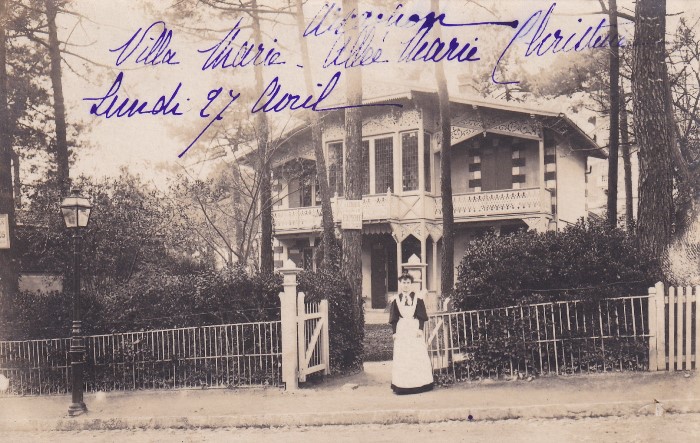 Arcachon
Villa Marie - Allée Marie Christine
Lundi 27 Avril